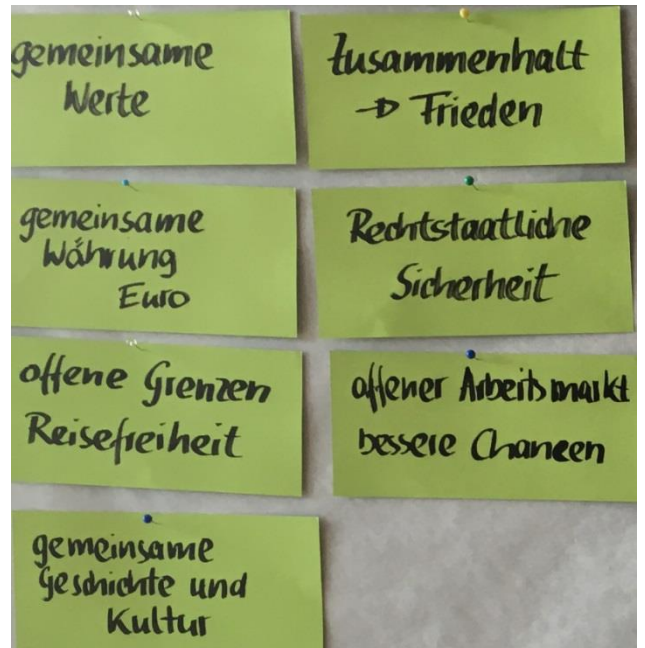 gemeinsame
Werte
Zusammenhalt
→ Frieden
gemeinsame
Währung
Euro
Rechtstaatliche
Sicherheit
offene Grenzen
Reisefreiheit
offener Arbeitsmarkt
bessere Chancen
gemeinsame
Geschichte und
Kultur